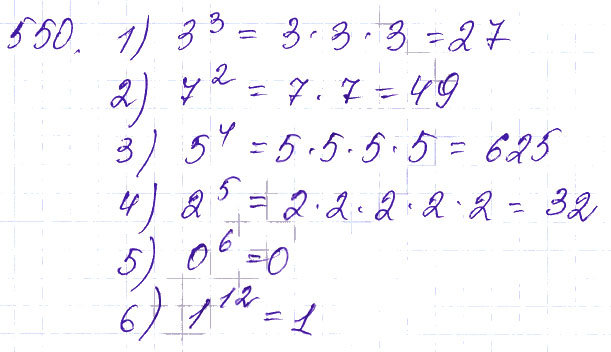 550. 1) 3³ = 3·3·3 = 27
2) 7² = 7·7 = 49
3) 5⁴ = 5·5·5·5 = 625
4) 2⁵ = 2·2·2·2·2 = 32
5) 0⁶ = 0
6) 1¹² = 1